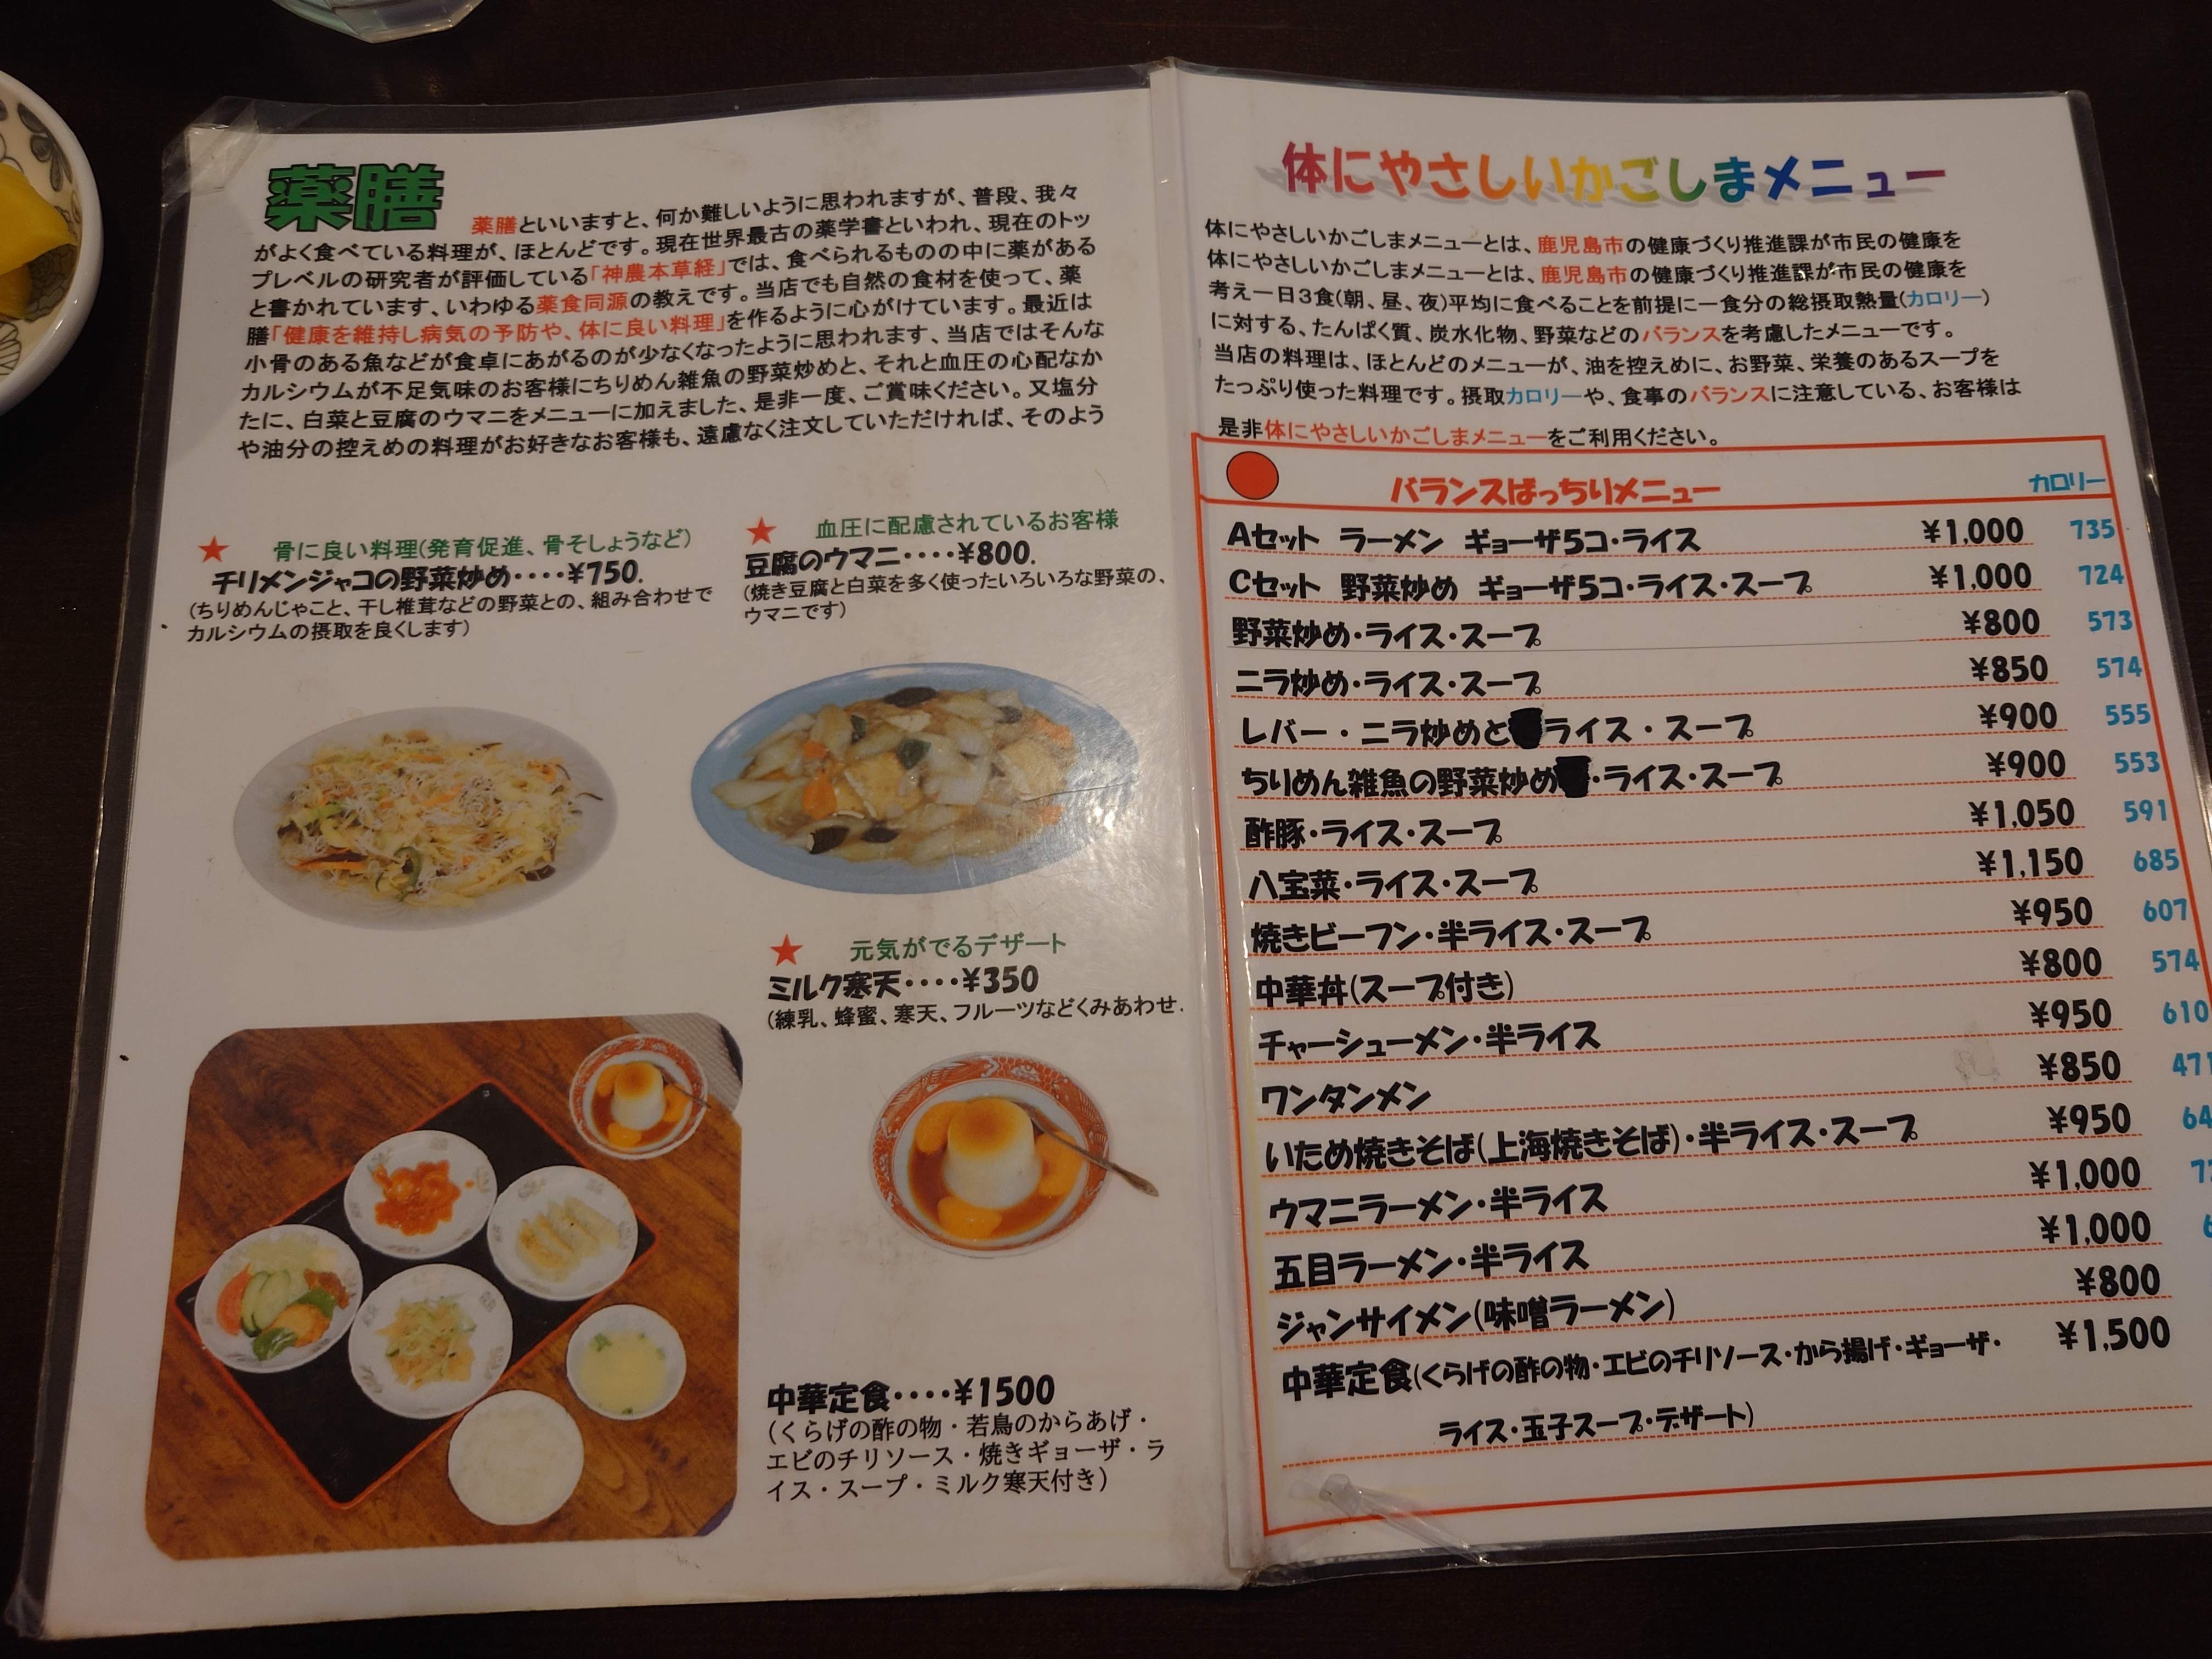 薬膳
薬膳といいますと、何か難しいように思われますが、普段、我々
がよく食べている料理が、ほとんどです。現在世界最古の薬学書といわれ、現在のトッ
プレベルの研究者が評価している「神農本草経」では、食べられるものの中に薬がある
と書かれています、いわゆる薬食同源の教えです。当店でも自然の食材を使って、薬
膳「健康を維持し病気の予防や、体に良い料理」を作るように心がけています。最近は
小骨のある魚などが食卓にあがるのが少なくなったように思われます、当店ではそんな
カルシウムが不足気味のお客様にちりめん雑魚の野菜炒めと、それと血圧の心配なか
たに、白菜と豆腐のウマニをメニューに加えました、是非一度、ご賞味ください。又塩分
や油分の控えめの料理がお好きなお客様も、遠慮なく注文していただければ、そのよう
★ 骨に良い料理(発育促進、骨そしょうなど)
チリメンジャコの野菜炒め････¥750.
(ちりめんじゃこと、干し椎茸などの野菜との、組み合わせで
カルシウムの摂取を良くします)
★ 血圧に配慮されているお客様
豆腐のウマニ････¥800.
(焼き豆腐と白菜を多く使ったいろいろな野菜の、
ウマニです)
★ 元気がでるデザート
ミルク寒天････¥350
(練乳、蜂蜜、寒天、フルーツなどくみあわせ.
中華定食････¥1500
(くらげの酢の物・若鳥のからあげ・
エビのチリソース・焼きギョーザ・ラ
イス・スープ・ミルク寒天付き)
体にやさしいかごしまメニュー
体にやさしいかごしまメニューとは、鹿児島市の健康づくり推進課が市民の健康を
体にやさしいかごしまメニューとは、鹿児島市の健康づくり推進課が市民の健康を
考え一日3食(朝、昼、夜)平均に食べることを前提に一食分の総摂取熱量(カロリー)
に対する、たんぱく質、炭水化物、野菜などのバランスを考慮したメニューです。
当店の料理は、ほとんどのメニューが、油を控えめに、お野菜、栄養のあるスープを
たっぷり使った料理です。摂取カロリーや、食事のバランスに注意している、お客様は
是非体にやさしいかごしまメニューをご利用ください。
バランスばっちりメニュー カロリー
Aセット ラーメン ギョーザ5コ・ライス ¥1,000 735
Cセット 野菜炒め ギョーザ5コ・ライス・スープ ¥1,000 724
野菜炒め・ライス・スープ ¥800 573
ニラ炒め・ライス・スープ ¥850 574
レバー・ニラ炒めと ライス・スープ ¥900 555
ちりめん雑魚の野菜炒め ・ライス・スープ ¥900 553
酢豚・ライス・スープ ¥1,050 591
八宝菜・ライス・スープ ¥1,150 685
焼きビーフン・半ライス・スープ ¥950 607
中華丼(スープ付き) ¥800 574
チャーシューメン・半ライス ¥950 610
ワンタンメン ¥850 471
いため焼きそば(上海焼きそば)・半ライス・スープ ¥950
ウマニラーメン・半ライス ¥1,000
五目ラーメン・半ライス ¥1,000
ジャンサイメン(味噌ラーメン) ¥800
中華定食(くらげの酢の物・エビのチリソース・から揚げ・ギョーザ・ ¥1,500
ライス・玉子スープ・デザート)